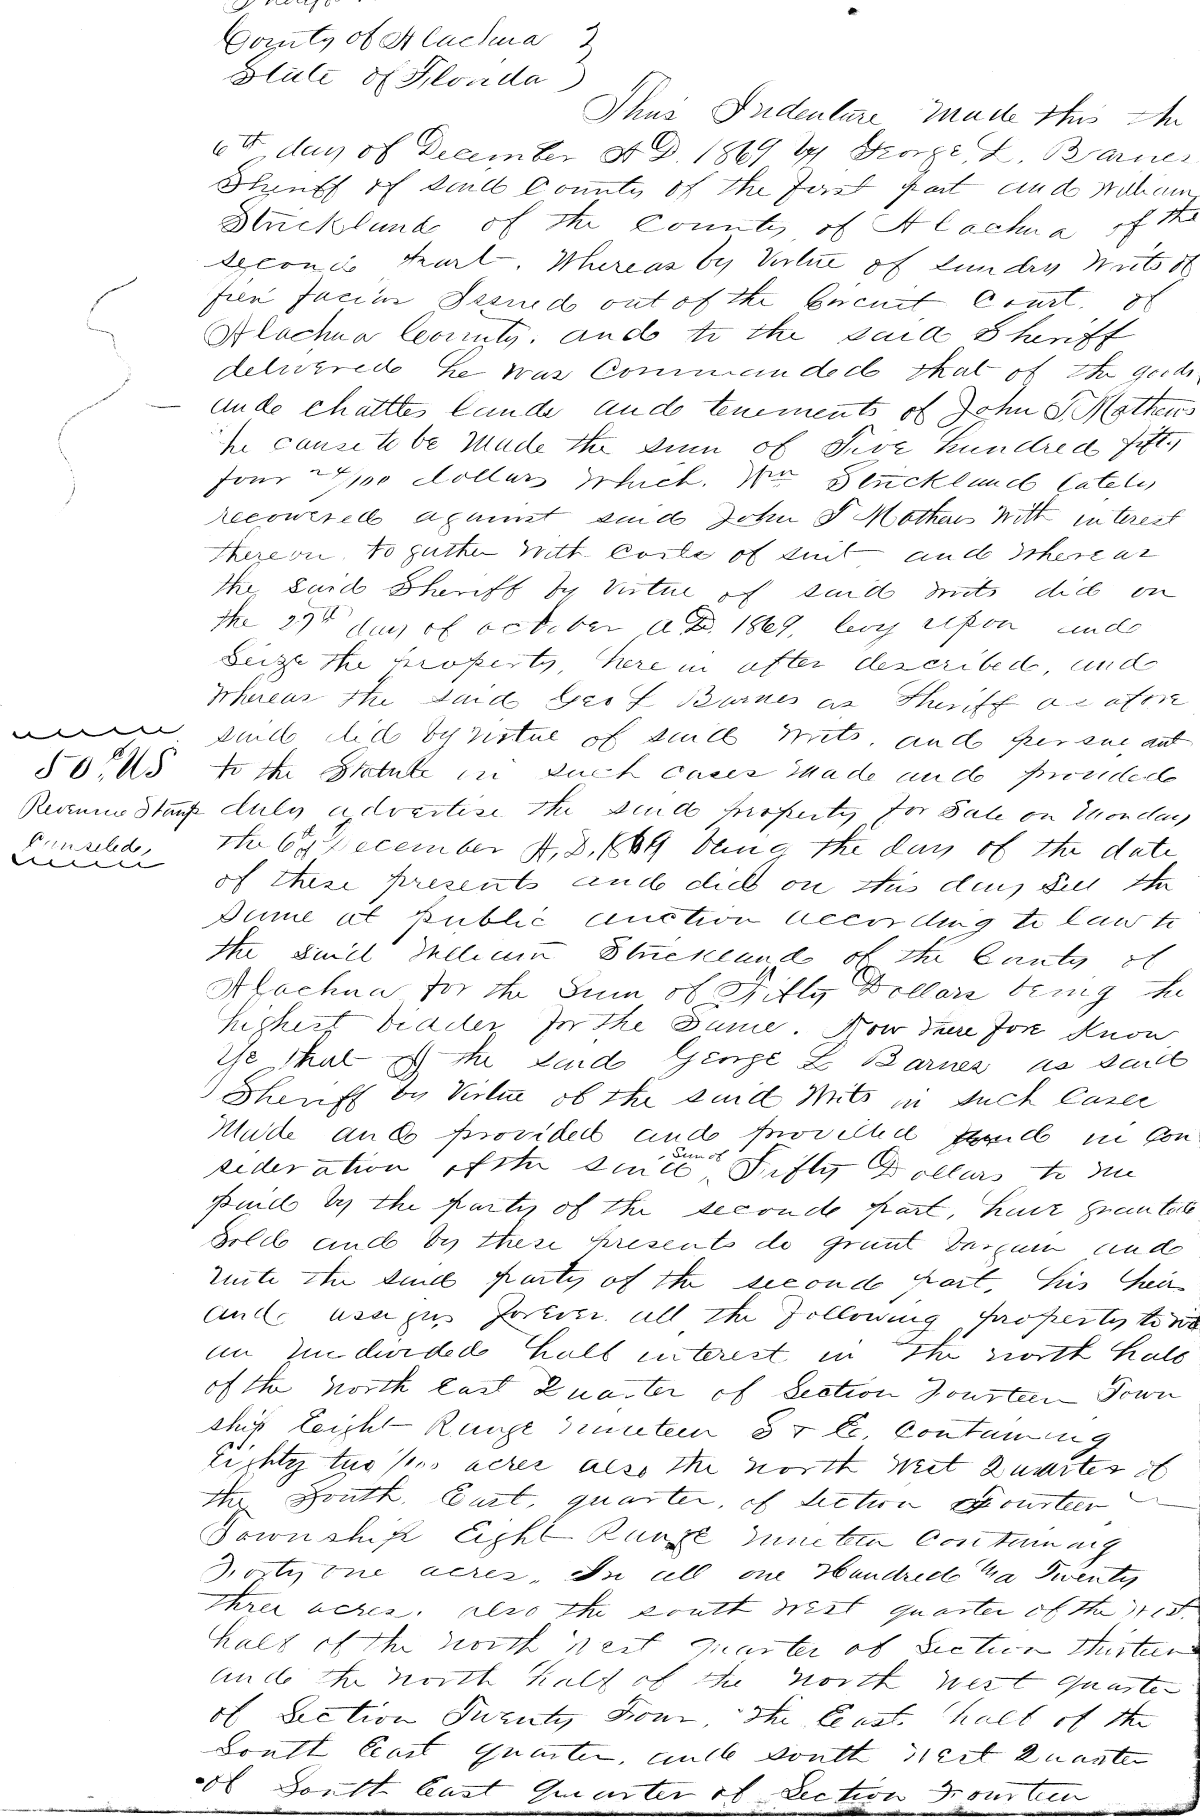 County of Alachua }
State of Florida }
This Indenture made this the
6th day of December A D. 1869 by George, L. Barnes
Sheriff of said County of the first part and William
Strickland of the County of Alachua of the
second part. Whereas by Virtue of sundry writs of
fieri facias Issued out of the Circuit Court. of
Alachua County. and to the said Sheriff
delivered he was Commanded that of the goods
and chattles lands and tenements of John T. Mathews
he cause to be Made the sum of Five hundred fifty
four 24/100 dollars which. Wm Strickland lately
recovered against said John T Mathews With interest
thereon to guther with costs of suit and whereas
the said Sheriff by virtue of said writs did on
the 29th day of october A.D. 1869, levy upon and
Seize the property, here in after described, and
whereas the said Geo L Barnes as Sheriff as afore
said did by virtue of said writs. and persueant
to the Statute in such cases Made and provided
duly advertise the said property for Sale on Monday
the 6th December A. D. 1869 being the day of the date
of these presents and did on this day Sell the
same at public auction according to law to
the said William Strickland of the County of
Alachua for the Sum of Fifty Dollars being the
highest bidder for the Same. Now there fore Know
Ye that I the said George L Barnes as said
Sheriff by Virtue of the said Writs in such Cases
Made and provided and provided and in Con
sideration of the said Sum of Fifty Dollars to me
paid by the party of the second part, have granted
Sold and by these presents do grant bargain and
unto the said party of the second part, his heirs
and assigns forever all the following property to wit
an undivided half interest in the north half
of the north East Quarter of Section Fourteen Town
ship Eight Range nineteen S & E, Containing
Eighty two acres also the north West Quarter of
the South. East. quarter. of Section Fourteen
Township Eight Range nineteen Containing
Forty one acres. In all one Hundred Twenty
three acres. also the south West quarter of the West
half of the north West quarter of Section thirteen
and the north half of the north west quarter
of Section Twenty Four, the East. half of the
South East quarter. and south West Quarter
of South East Quarter of Section Fourteen
50c US
Revenue Stamp
Canseled,